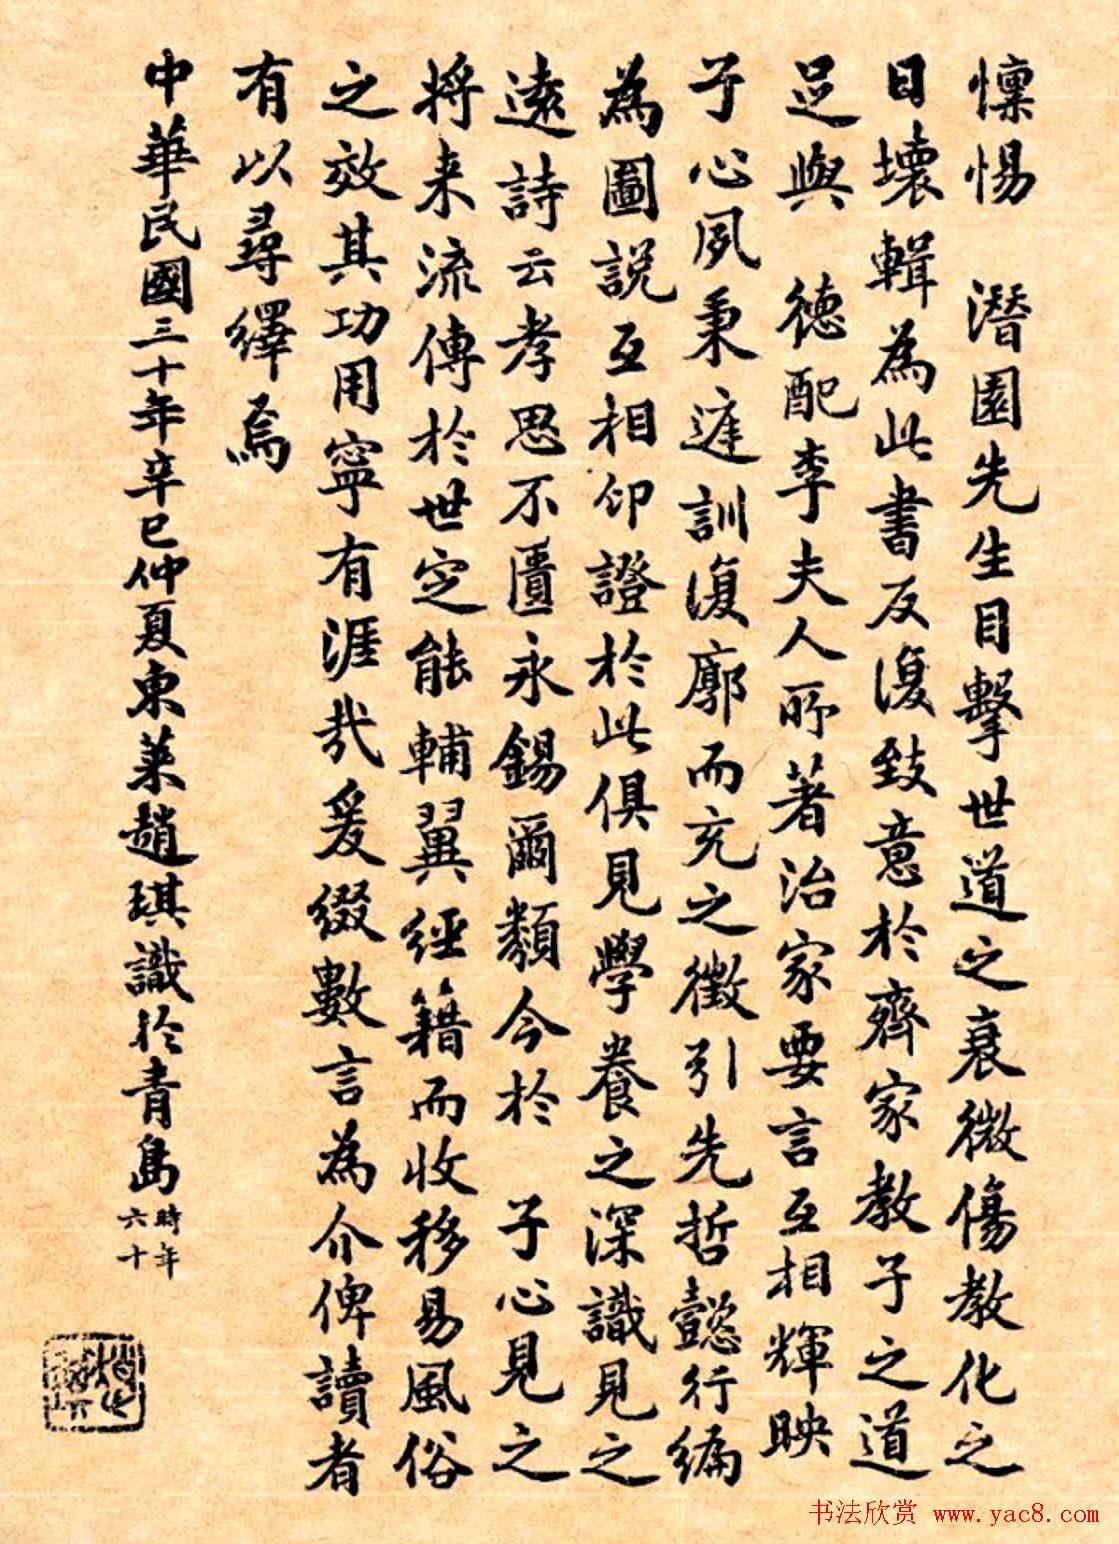 懔惕　潛園先生目擊世道之衰微傷教化之
日壞輯為此書反復致意於齊家教子之道
足與　德配李夫人所著治家要言互相輝映
子心夙秉遳訓復廓而充之徵引先哲懿行編
為圖說互相印證於此俱見學養之深識見之
遠詩云孝思不匱永錫爾類今於　子心見之
將来流傳於世定能輔翼經籍而收移易風俗
之效其功用寧有涯哉爰綴數言為介俾讀者
有以尋繹焉
中華民國三十年辛巳仲夏東萊趙琪識於青島時年六十
书法欣赏 www.yac8.com